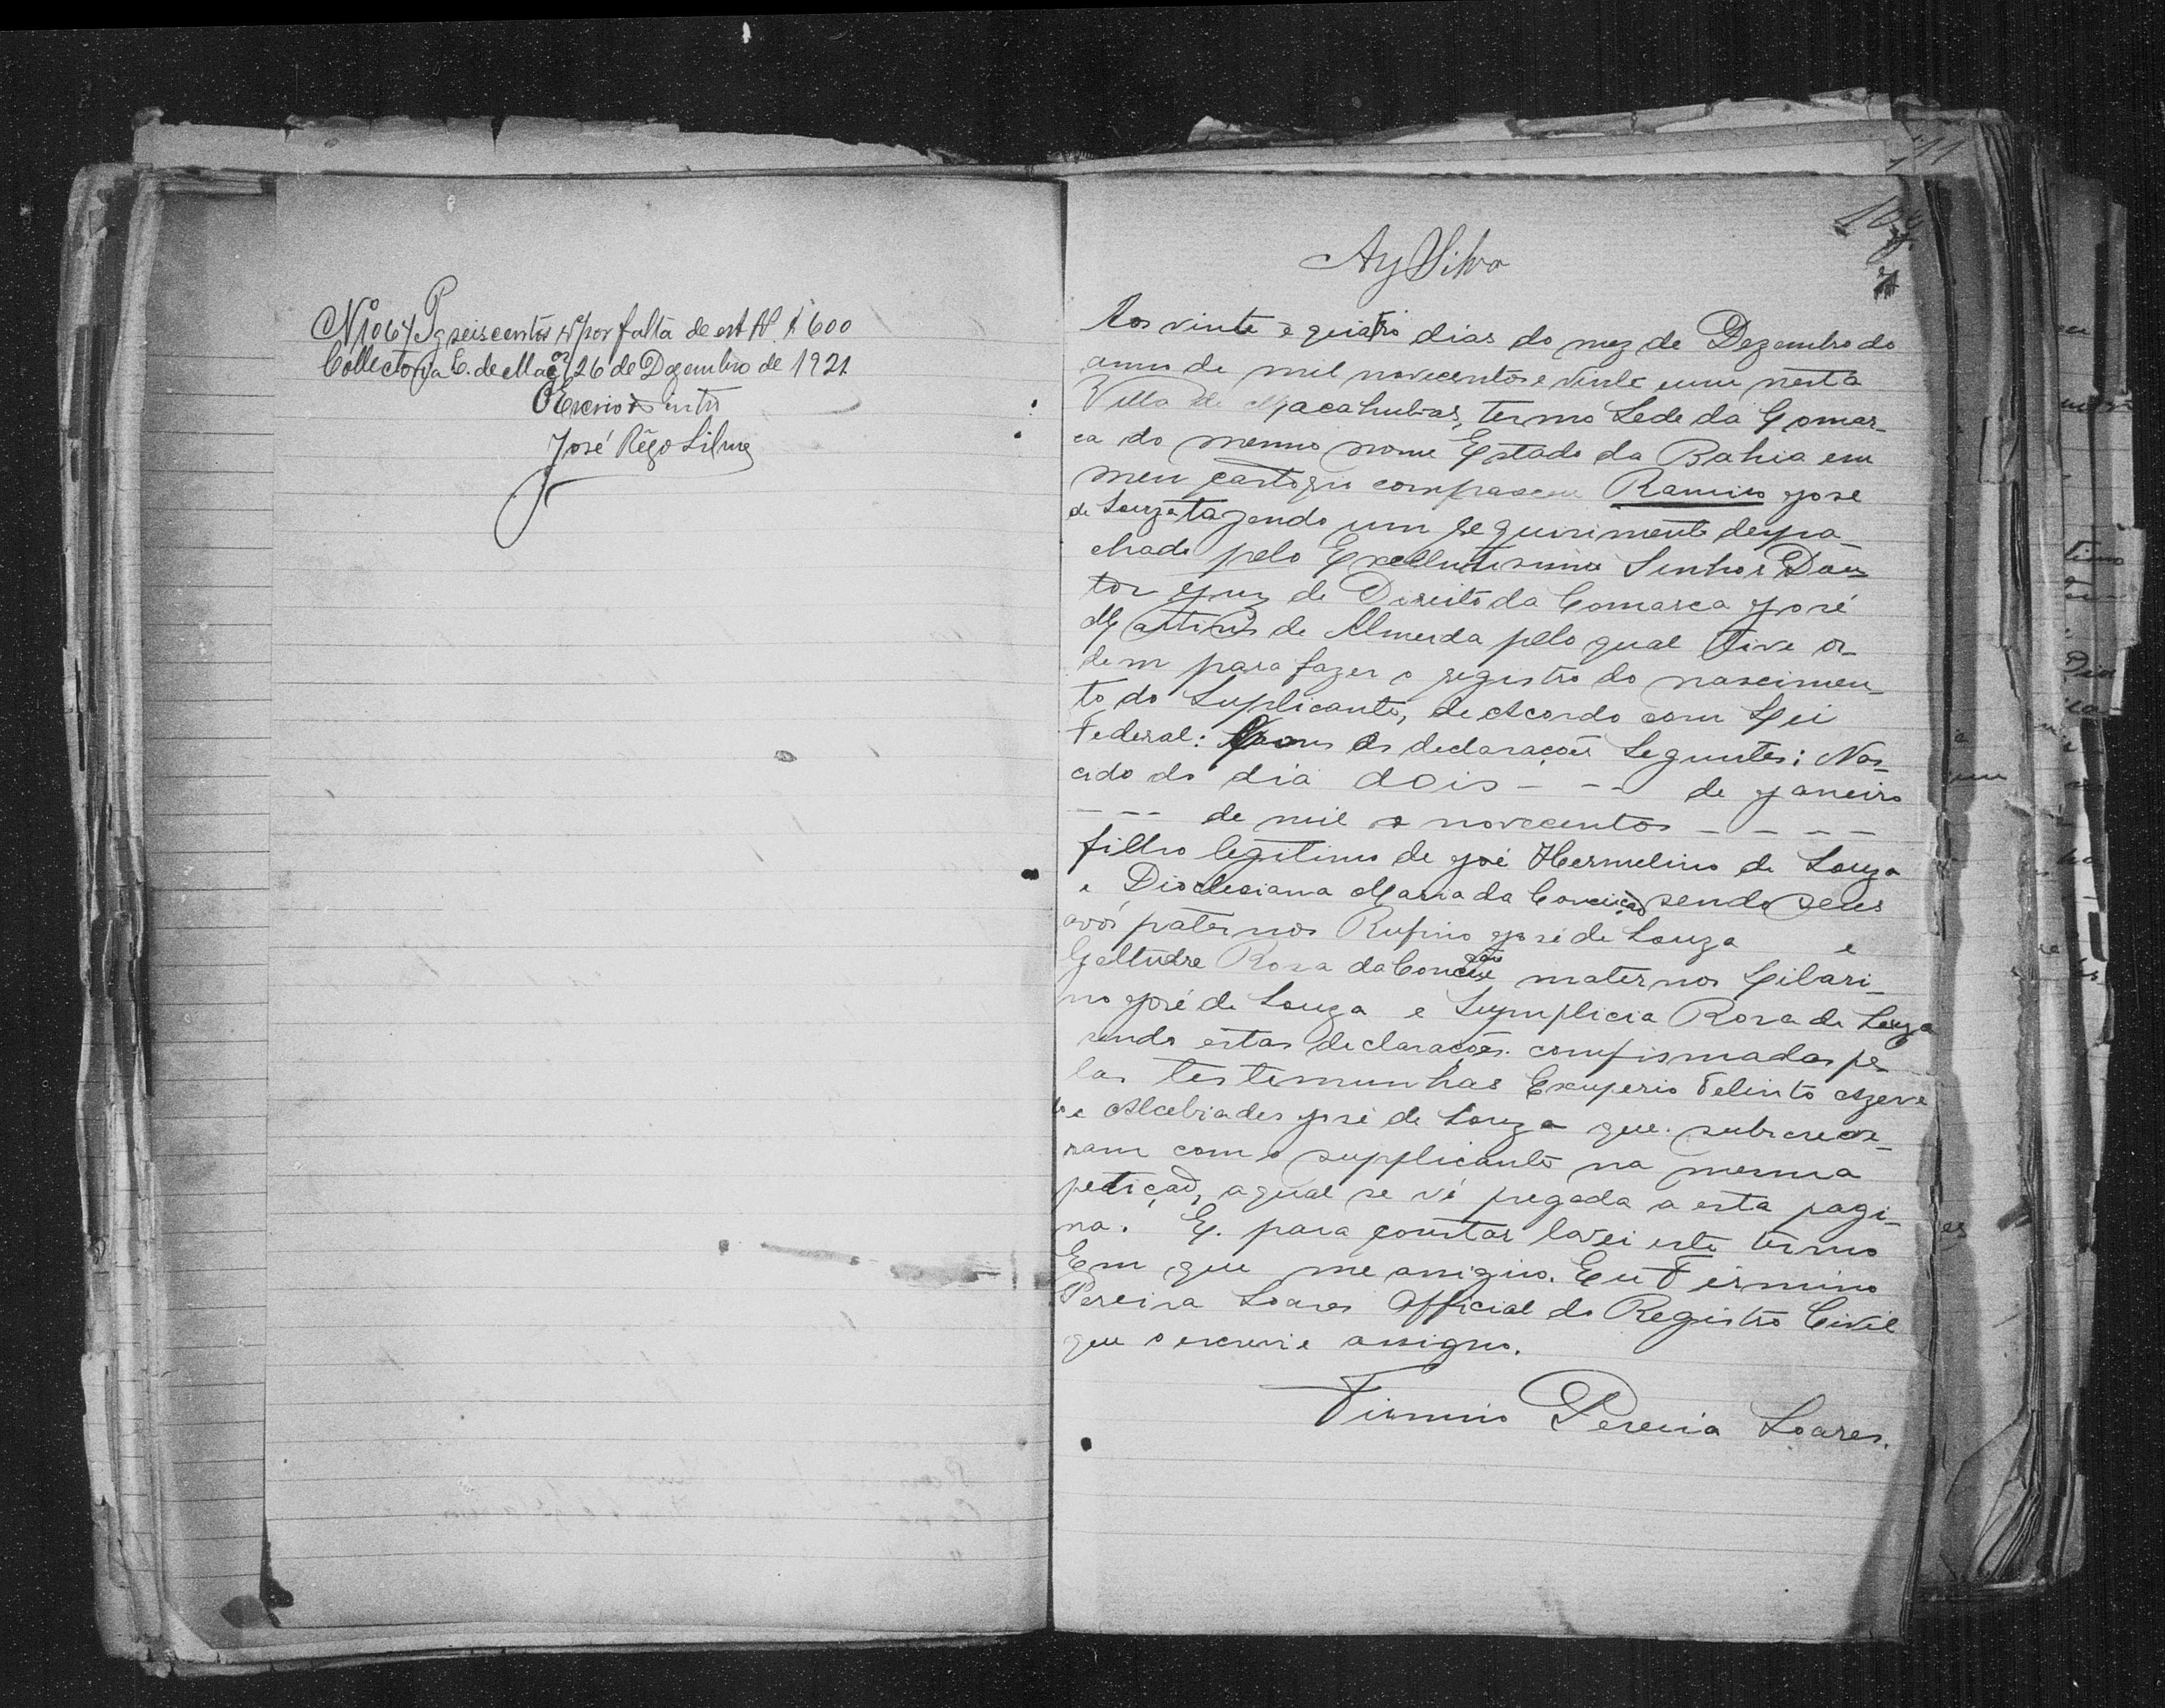 Nº1064 Pg seiscentos rs por falta de est Nº $600
Collectoria E. de Macas 26 de Dezembro de 1921
O Escrivão intro
José Rêgo Silva
104
Ay Silva
Aos vinte e quatro dias do mez de Dezembro do
anno de mil novecentos e vinte um nesta
Villa de Macahubas, termo Sede da Comar-
ca do mesmo nome Estado da Bahia em
meu cartorio compareceu Ramiro José
de Souza tazendo um requirimento despa-
chado pelo Excellentissimo Senhor Dou-
tor Juiz de Direito da Comarca José
Martins de Almeida pelo qual tive or-
dem para fazer o registro do nascimen-
to do Suplicante, de accordo com Lei
Federal: as declarações Seguintes: Nas-
cido do dia dois - - - de Janeiro
- - - de mil e novecentos - - - -
filho legitimo de José Hermelino de Souza
e Diocleciana Maria da Conceição sendo seus
avós paternos Rufino José de Souza e
Geltudre Rosa da Conceição maternos Hilari-
no José de Souza e Symplicia Rosa de Souza
sendo estas declarações confismadas pe-
las testemunhas Exuperio Felinto Azeve
do e Alcebiades José de Souza que subscreve-
ram com o supplicante na mesma
petição, a qual se vê pregada a esta pagi-
na. E para constar lavei este termo
Em que me assigno. Eu Firmino
Pereira Soares Official do Registro Civil
que o escrevi e assigno.
Firmino Pereira Soares.